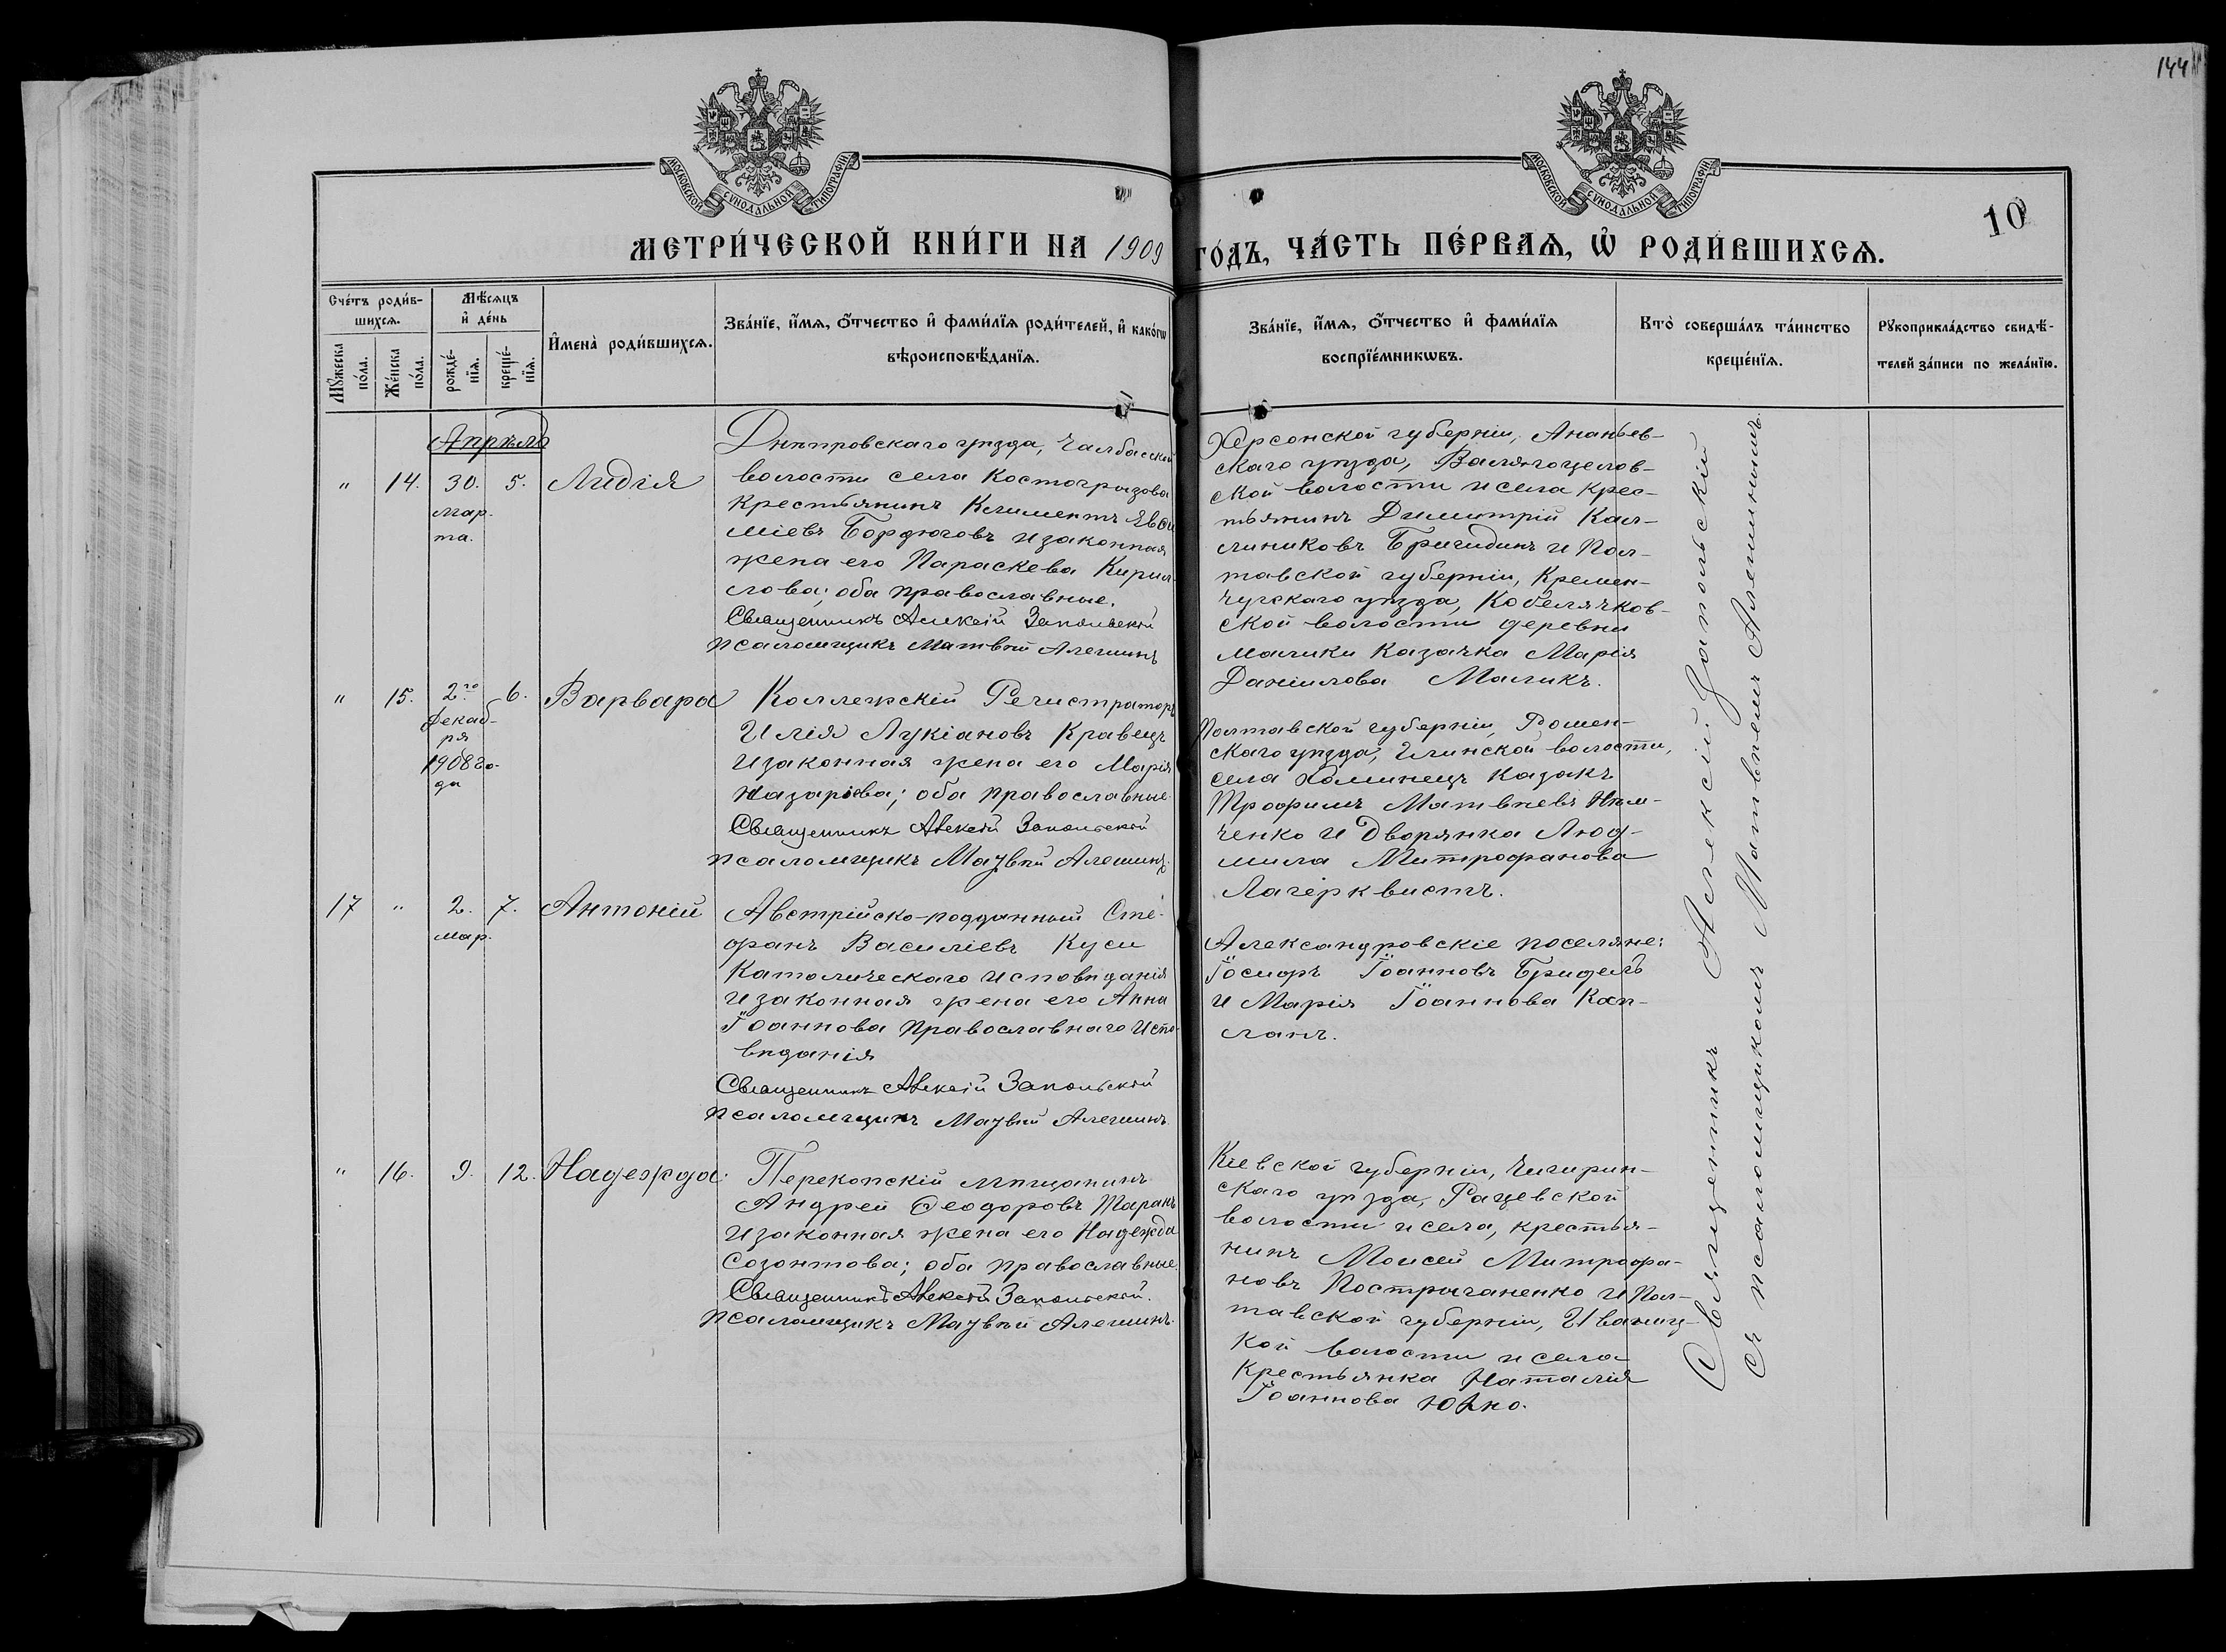 144
МОСКОВСКОЙ СѴНОДАЛЬНОЙ ТИПОГРАФІИ
МОСКОВСКОЙ СѴНОДАЛЬНОЙ ТИПОГРАФІИ
10
МЕТРИ́ЧЕСКОЙ КНИ́ГИ НА 1909 ГО́ДЪ, ЧА́СТЬ ПЕ́РВАѦ, Ѡ҆ РОДИ́ВШИХСѦ.
Сче́тъ роди́в-
шихсѧ.
Мѣ́сѧцъ
и҆ де́нь
И҆мена̀ роди́вшихсѧ.
Зва́нїе, и҆́мѧ, ѻ҆́тчество и҆ фами́лїѧ роди́телей, и҆ како́гѡ
вѣроисповѣ́данїѧ.
Зва́нїе, и҆́мѧ, ѻ҆́тчество и҆ фами́лїѧ
воспрїе́мникѡвъ.
Кто̀ соверша́лъ та́инство
креще́нїѧ.
Рꙋкоприкла́дство свидѣ́-
телей за́писи по жела́нїю.
Мꙋ́жеска
по́ла.
Же́нска
по́ла.
рожде́-
нїѧ.
креще́-
нїѧ.
Апрѣль
" 14. 30. 5. Лидія
мар-
та.
Днѣпровскаго уѣзда, Чалбасской
волости села Костогрызова
крестьянинъ Климентъ Евѳи
міевъ Бордюговъ и законная
жена его Параскева Кирил-
лова; оба православные.
Священникъ Алексій Запольскій
Псаломщикъ Матвѣй Алешинъ
Херсонской губерніи, Ананьев-
скаго уѣзда, Валягоцелов-
ской волости и села крес-
тьянинъ Димитрій Кал-
линиковъ Бригидинъ и Пол-
тавской губерніи, Кремен-
чугскаго уѣзда, Кобелячков-
ской волости деревни
Малики казачка Марія
Даніилова Маликъ.
" 15. 2го 6. Варвара
декаб-
ря
1908 го-
да
Коллежскій Регистраторъ
Илія Лукіановъ Кравецъ
и законная жена его Марія
Назаріева; оба православные.
Священникъ Алексій Запольскій
Псаломщикъ Матвѣй Алешинъ.
Полтавской губерніи, Ромен-
скаго уѣзда, Глинской волости,
села Хоминецъ казакъ
Трофимъ Матвѣевъ Ним-
ченко и Дворянка Люд-
мила Митрофанова
Лагерквистъ.
17 " 2. 7. Антоній
мар.
Австрійско-подданный Сте-
фанъ Василіевъ Куси
Католическаго исповѣданія
и законная жена его Анна
Іоаннова Православнаго испо-
вѣданія
Священникъ Алексій Запольскій
Псаломщикъ Матвѣй Алешинъ.
Александровскіе поселяне:
Іосифъ Іоанновъ Бридель
и Марія Іоаннова Кап-
ланъ.
" 16. 9. 12. Надежда.
Перекопскій мѣщанинъ
Андрей Ѳеодоровъ Таранъ
и законная жена его Надежда
Созонтова; оба православные.
Священникъ Алексій Запольскій.
Псаломщикъ Матвѣй Алешинъ.
Кіевской губерніи, Чигирин-
скаго уѣзда, Рацевской
волости и села, крестья-
нинъ Моисей Митрофа-
новъ Постриганенко и Пол-
тавской губерніи, Иваниц-
кой волости и села
крестьянка Наталія
Іоаннова Юхно.
Священникъ Алексій Запольскій
съ псаломщикомъ Матвѣемъ Алешинымъ.